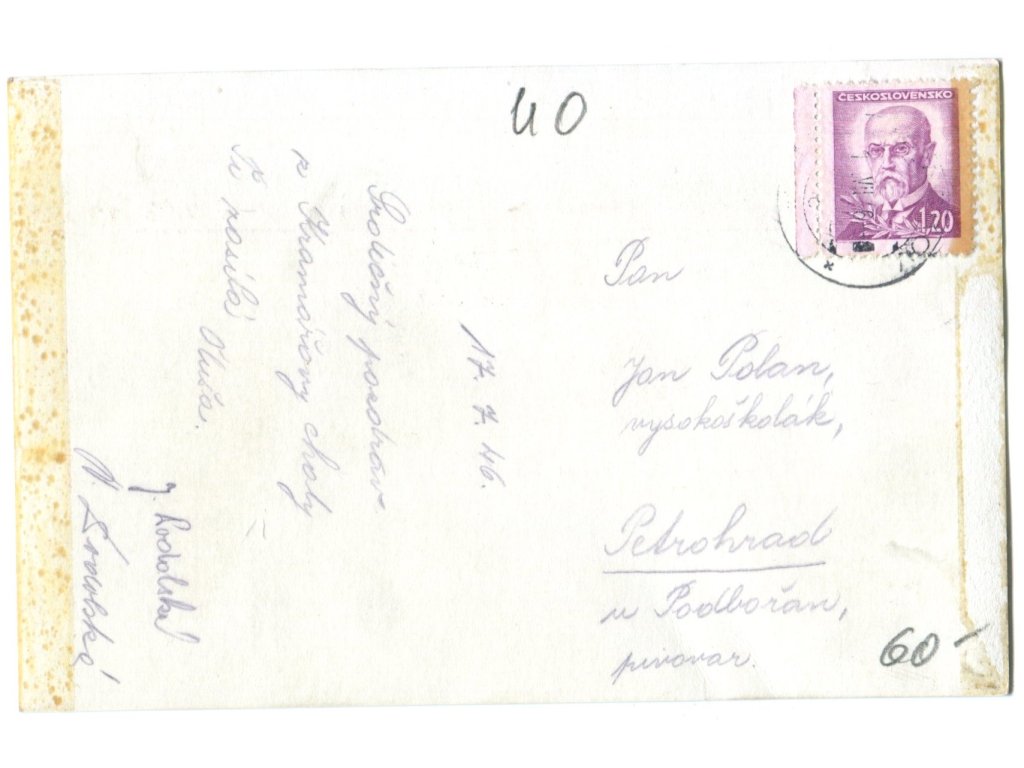 40
ČESKOSLOVENSKO
1,20
17. 7. 46.
Srdečný pozdrav
z Kramářovy chaty
Ti zasílá Oluša.
Pan
Jan Polan,
vysokoškolák,
Petrohrad
u Podbořan,
pivovar.
60-